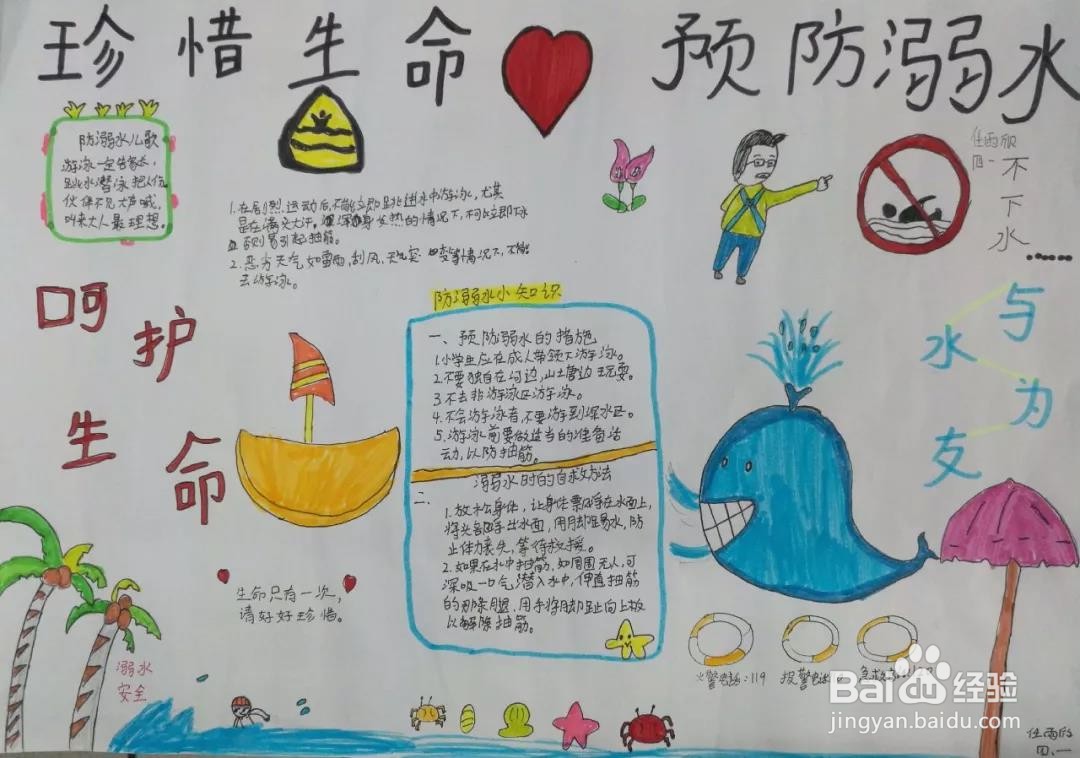 珍惜生命 预防溺水
防溺水儿歌
游泳一定告家长，
伙伴不见大声喊，
叫来大人最理想。
1.在剧烈运动后，不能立即跳进水中游泳，尤其
是在满头大汗，浑身发热的情况下，不可立即下水
否则易引起抽筋。
2.恶劣天气如雷雨，刮风，天气突变等情况下，不能
去游泳。
任雨欣
四、一
不下水……
呵护生命
与水为友
防溺水小知识
一、预防溺水的措施
1.小学生应在成人带领下游泳。
2.不要独自在河边，山塘边玩耍。
3.不去非游泳区游泳。
4.不会游泳者，不要游到深水区。
5.游泳前要做适当的准备活
动，以防抽筋。
二、溺水时的自救方法
1.放松身体，让身体漂浮在水面上，
将头部浮出水面，用脚踢水，防
止体力丧失，等待救援。
2.如果在水中抽筋，如周围无人，可
深吸一口气潜入水中，伸直抽筋
的那条腿，用手将脚趾向上扳
以解除抽筋。
生命只有一次，
请好好珍惜。
溺水
安全
火警电话：119 报警电话
Baidu经验
jingyan.baidu.com
四、一